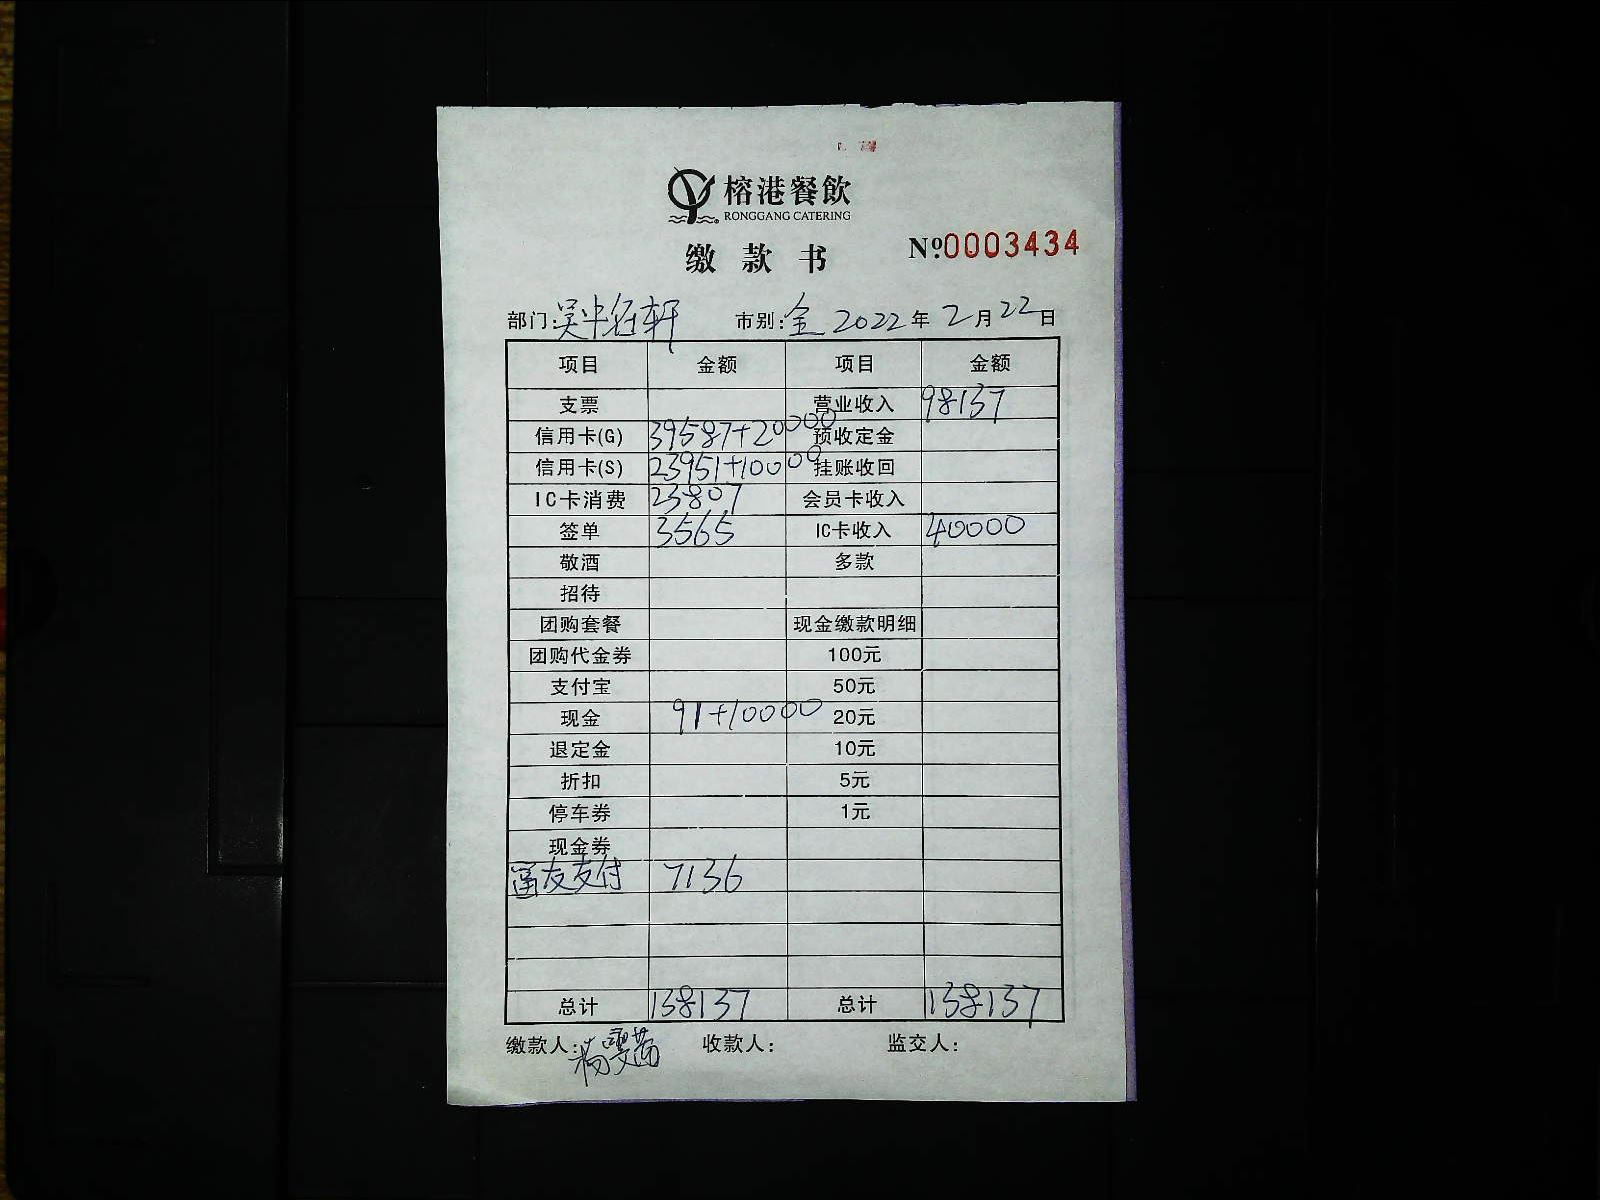 榕港餐飲
RONGGANG CATERING
缴款书 Nº0003434
部门: 市别:全 2022年2月22日
项目 金额 项目 金额
支票 营业收入 98137
信用卡(G) 39587+20000 预收定金
信用卡(S) 23951+10000 挂账收回
IC卡消费 23807 会员卡收入
签单 3565 IC卡收入 40000
敬酒 多款
招待
团购套餐 现金缴款明细
团购代金券 100元
支付宝 50元
现金 91+10000 20元
退定金 10元
折扣 5元
停车券 1元
现金券
友支付 7136
总计 138137 总计 138137
缴款人: 收款人: 监交人: